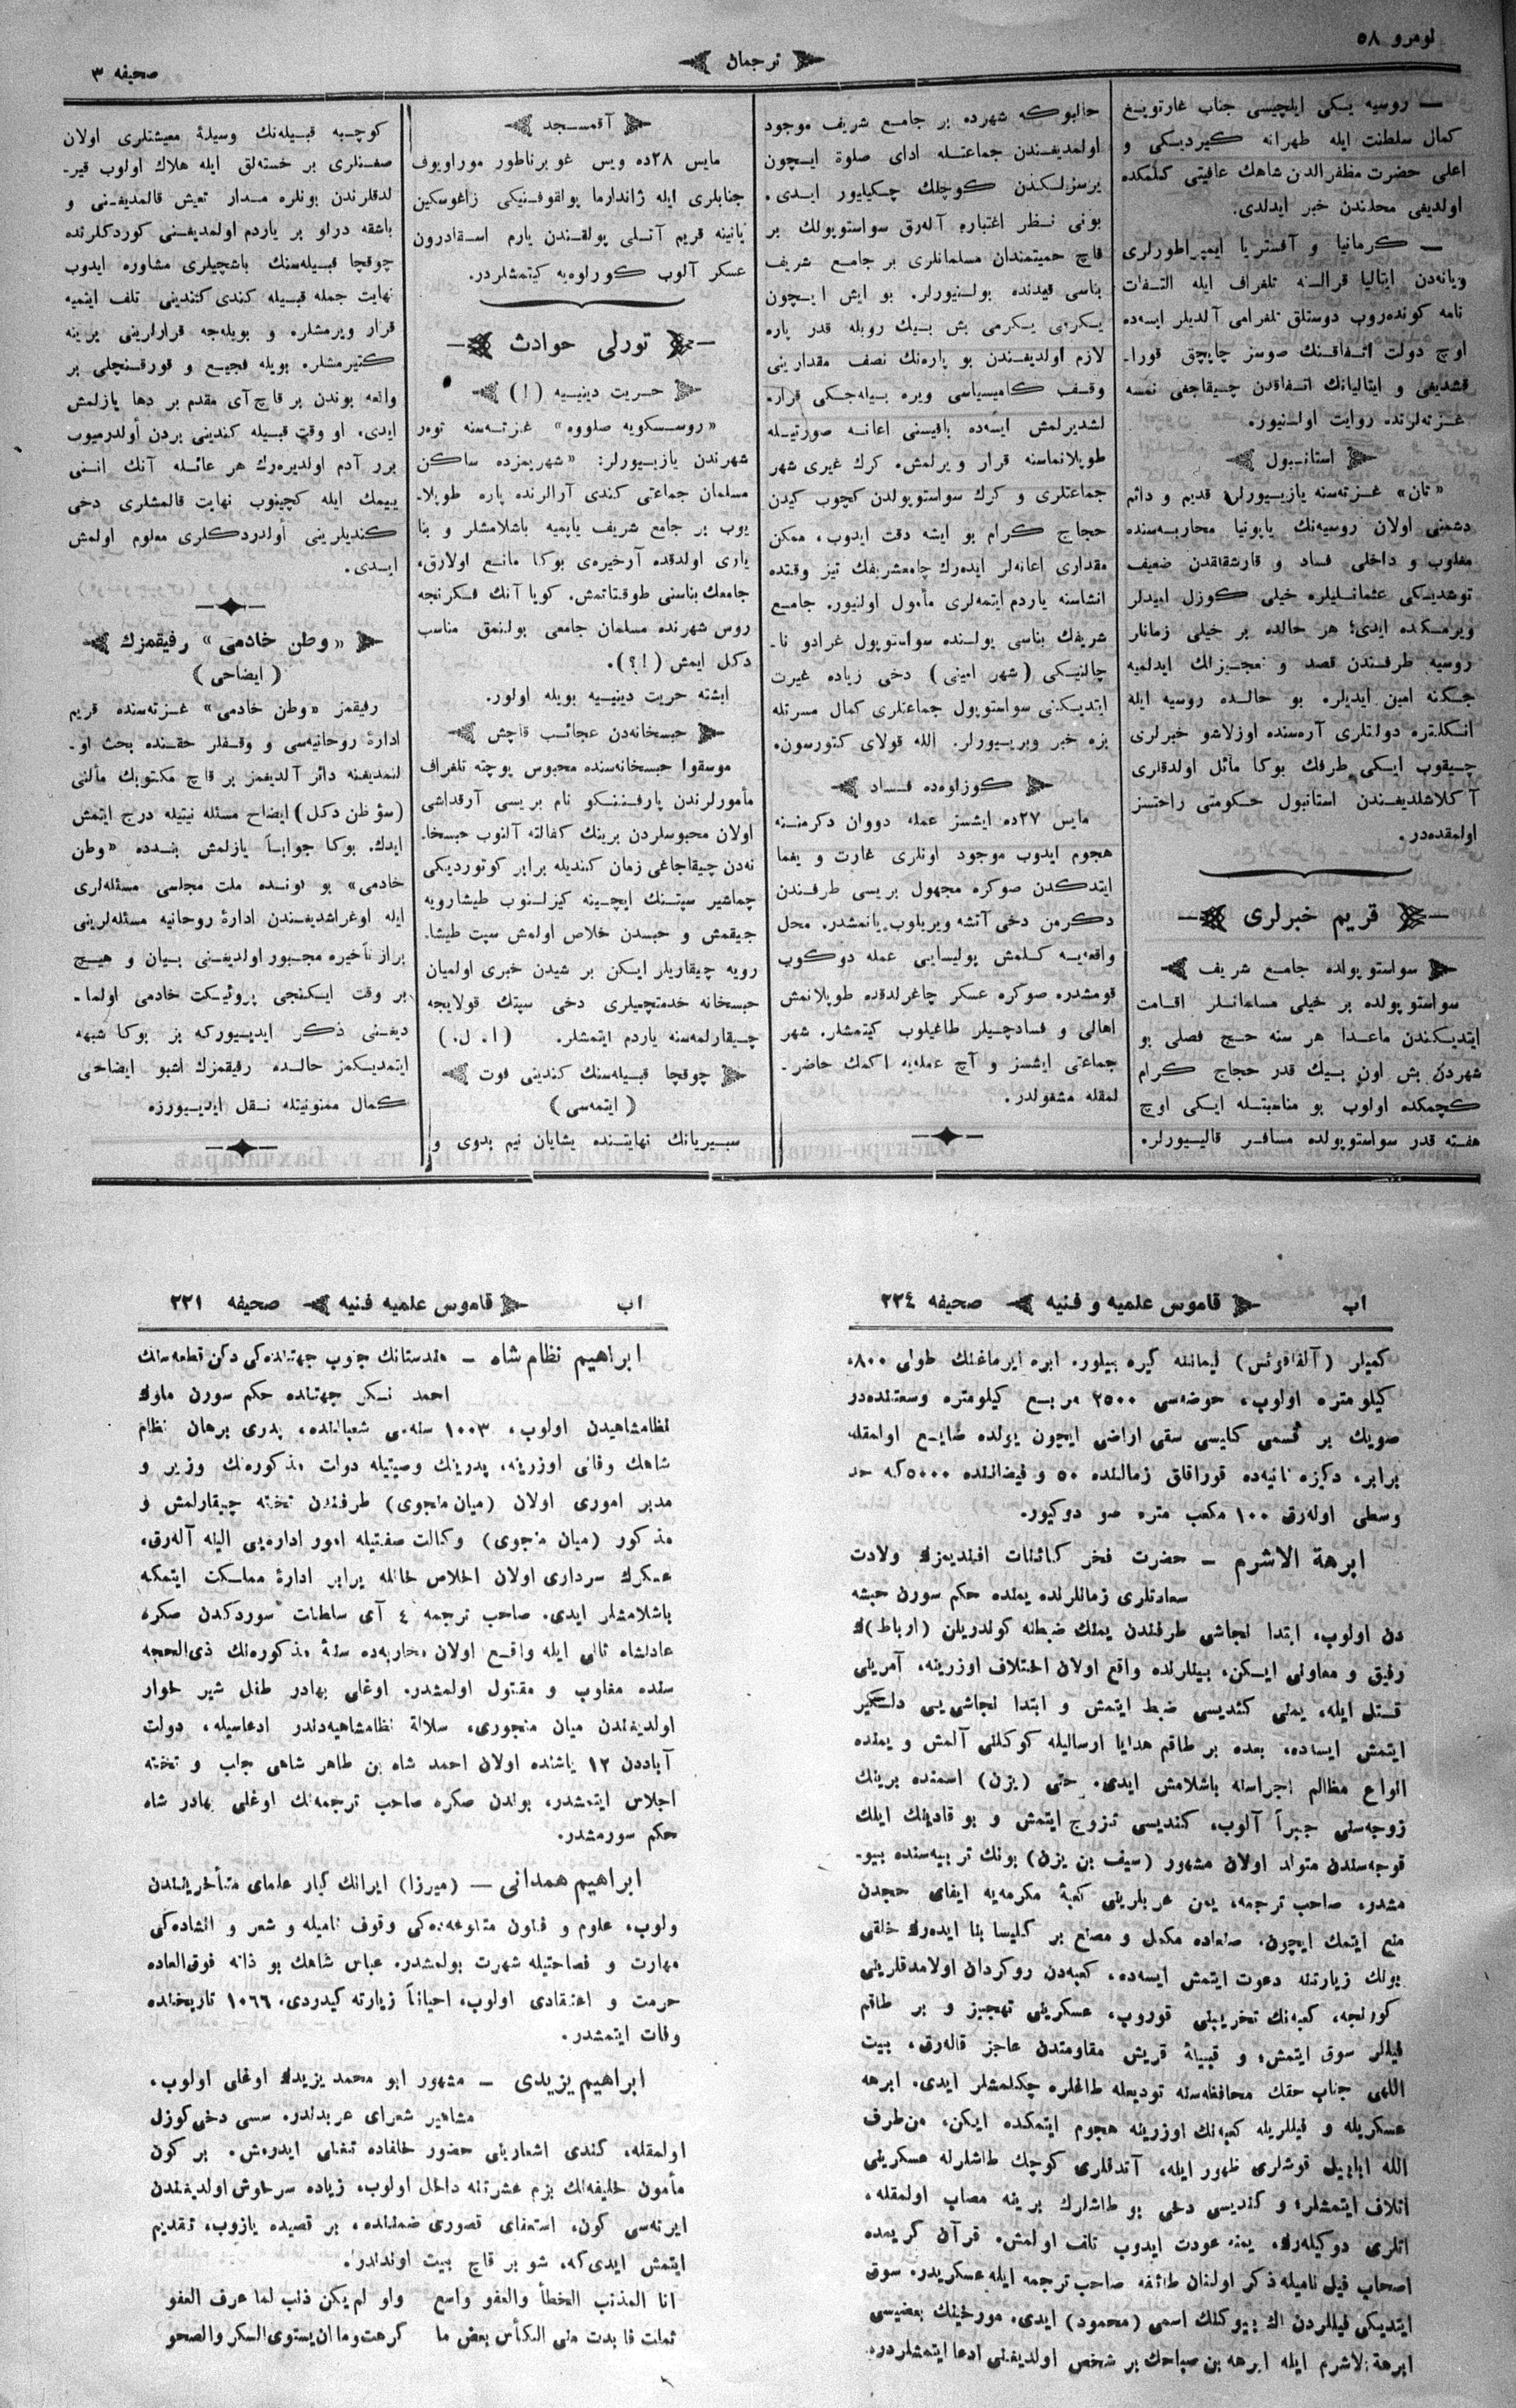 نومرو ٥٨
ترجمان
صحیفه ٣
— روسیه یکی ایلچیسی جناب غارتویغ
کمال سلطنت ایله طهرانه کیردیکی و
اعلی حضرت مظفرالدن شاهك عافیتی کلمکده
اولدیغی محلندن خبر ایدلدی.
— کرمانیا و آفستریا ایمپراطورلری
ویانه‌دن ایتالیا قرالنه تلغراف ایله التفات
نامه کونده‌روب دوستلق تلغرامی آلدیلر ایسه‌ده
اوچ دولت اتفاقنك صوسز چایچق قورا-
قشدیغی و ایتالیانك اتفاقدن چیقاجغی نمسه
غزته‌لرنده روایت اولنیور.
استانبول
«تان» غزته‌سنه یازییورلر قدیم و دائم
دشمنی اولان روسیه‌نك یاپونیا محاربه‌سنده
مغلوب و داخلی فساد و قارشقلقدن ضعیف
توشدیکی عثمانلیلره خیلی کوزل امیدلر
ویرمکده ایدی؛ هر حالده بر خیلی زمانلر
روسیه طرفندن قصد و تعجیزلك ایدلمیه
جکنه امین ایدیلر. بو حالده روسیه ایله
انکلتره دولتلری آره‌سنده اوزلاشو خبرلری
چیقوب ایکی طرفك بوکا مائل اولدقلری
آکلاشلدیغندن استانبول حکومتی راحتسز
اولمقده‌در.
قریم خبرلری
سواستوپولده جامع شریف
سواستوپولده بر خیلی مسلمانلر اقامت
ایتدیکندن ماعدا هر سنه حج فصلی بو
شهردن بش اون بیك قدر حجاج کرام
کچمکده اولوب بو مناسبتله ایکی اوچ
هفته قدر سواستوپولده مسافر قالییورلر.
حالبوکه شهرده بر جامع شریف موجود
اولمدیغندن جماعتله ادای صلوة ایچون
یرسزلکدن کوچلك چکیلیور ایدی.
بونی نظر اعتباره آله‌رق سواستوپولك بر
قاچ حمیتمندان مسلمانلری بر جامع شریف
بناسی قیدنده بولنیورلر. بو ایش ایچون
یکرمی یکرمی بش بیك روبله قدر پاره
لازم اولدیغندن بو پاره‌نك نصف مقدارینی
وقف کامیسیاسی ویره بیله‌جکی قرار-
لشدیرلمش ایسه‌ده باقیسنی اعانه صورتیله
طوپلانماسنه قرار ویرلمش. کرك غیری شهر
جماعتلری و کرك سواستوپولدن کچوب کیدن
حجاج کرام بو ایشه دقت ایدوب، ممکن
مقداری اعانه‌لر ایده‌رك جامعشریفك تیز وقتده
انشاسنه یاردم ایتمه‌لری مأمول اولنیور. جامع
شریفك بناسی یولنده سواستوپول غرادو نا-
چالنیکی (شهر امینی) دخی زیاده غیرت
ایتدیکنی سواستوپول جماعتلری کمال مسرتله
بزه خبر ویرییورلر. الله قولای کتورسون.
کوزلوه‌ده فساد
مایس ٢٧ده ایشسز عمله دووان دکرمننه
هجوم ایدوب موجود اونلری غارت و یغما
ایتدکدن صوکره مجهول بریسی طرفندن
دکرمن دخی آتشه ویریلوب یانمشدر. محل
واقعه‌یه کلمش پولیسایی عمله دوکوب
قومشدر. صوکره عسکر چاغرلدقده طوپلانمش
اهالی و فسادچیلر طاغیلوب کیتمشلر. شهر
جماعتی ایشسز و آچ عمله‌یه اکمك حاضر-
لمقله مشغولدر.
آقمسجد
مایس ٢٨ده ویس غوبرناطور موراویوف
جنابلری ایله ژاندارما پولقوفنیکی زاغوسکین
یانینه قریم آتلی پولقندن یارم اسقادرون
عسکر آلوب کوزلوه‌یه کیتمشلردر.
تورلی حوادث
حریت دینیه (!)
«روسسکویه صلووه» غزته‌سنه توه‌ر
شهرندن یازییورلر: «شهریمزده ساکن
مسلمان جماعتی کندی آرالرنده پاره طوپلا-
یوب بر جامع شریف یاپمیه باشلامشلر و بنا
یاری اولدقده آرخیره‌ی بوکا مانع اولارق،
جامعك بناسنی طوقتاتمش. کویا آنك فکرنجه
روس شهرنده مسلمان جامعی بولنمق مناسب
دکل ایمش (!؟).
ایشته حریت دینیه بویله اولور.
حبسخانه‌دن عجائب قاچش
موسقوا حبسخانه‌سنده محبوس پوچته تلغراف
مأمورلرندن پارفننکو نام بریسی آرقداشی
اولان محبوسلردن برینك کفالته آلنوب حبسخا-
نه‌دن چیقاجاغی زمان کندیله برابر کوتوردیکی
چماشیر سپتنك ایچینه کیزلنوب طیشارویه
چیقمش و حبسدن خلاص اولمش سپت طیشا-
رویه چیقاریلر ایکن بر شیدن خبری اولمیان
حبسخانه خدمتچیلری دخی سپتك قولایجه
چیقارلمه‌سنه یاردم ایتمشلر. (ا. ل.)
چوقچا قبیله‌سنك کندینی فوت
(ایتمه‌سی)
سیبریانك نهایتنده یشایان نیم بدوی و
کوچبه قبیله‌نك وسیلهٔ معیشتلری اولان
صغنلری بر خسته‌لق ایله هلاك اولوب قیر-
لدقلرندن بونلره مدار تعیش قالمدیغنی و
باشقه درلو بر یاردم اولمدیغنی کوردکلرنده
چوقچا قبیله‌سنك باشچیلری مشاوره ایدوب
نهایت جمله قبیله کندی کندینی تلف ایتمیه
قرار ویرمشلر. و بویله‌جه قرارلرینی یرینه
کتیرمشلر. بویله فجیع و قورقنچلی بر
واقعه بوندن بر قاچ آی مقدم بر دها یازلمش
ایدی. او وقت قبیله کندینی بردن أولدرمیوب
برر آدم اولدیره‌رك هر عائله آنك اتنی
ییمك ایله کچینوب نهایت قالمشلری دخی
کندیلرینی أولدردکلری معلوم اولمش
ایدی.
«وطن خادمی» رفیقمزك
(ایضاحی)
رفیقمز «وطن خادمی» غزته‌سنده قریم
ادارهٔ روحانیه‌سی و وقفلر حقنده بحث او-
لنمدیغنه دائر آلدیغمز بر قاچ مکتوبك مألنی
(سؤ ظن دکل) ایضاح مسئله نیتیله درج ایتمش
ایدك. بوکا جواباً یازلمش بندده «وطن
خادمی» بو اونده ملت مجلسی مسئله‌لری
ایله اوغراشدیغندن ادارهٔ روحانیه مسئله‌لرینی
براز تأخیره مجبور اولدیغنی بیان و هیچ
بر وقت ایکنجی پروئیکت خادمی اولما-
دیغنی ذکر ایدییورکه بز بوکا شبهه
ایتمدیکمز حالده رفیقمزك اشبو ایضاحی
کمال ممنونیتله نقل ایدییورز.
اب
قاموس علمیه و فنیه
صحیفه ٢٢٤
کمیلر (آلفاقوئس) لیماننه کیره بیلور. ابره ایرماغنك طولی ٨٠٠
کیلومتره اولوب، حوضه‌سی ٢٥٠٠ مربع کیلومتره وسعتنده‌در
صوینك بر قسمی کلیسی سقی اراضی ایچون یولده ضایع اولمقله
برابر، دکزه ثانیه‌ده قوراقلق زماننده ٥٠ و فیضاننده ٥٠٠٠که حد
وسطی اوله‌رق ١٠٠ مکعب متره صو دوکیور.
ابرهة الاشرم — حضرت فخر کائنات افندیمزك ولادت
سعادتلری زمانلرنده یمنده حکم سورن حبشه
دن اولوب، ابتدا نجاشی طرفندن یمنك ضبطنه کوندریلن (ارباط)ك
رفیق و معاونی ایکن، بینلرنده واقع اولان اختلاف اوزرینه، آمرینی
قتل ایله، یمنی کندیسی ضبط ایتمش و ابتدا نجاشی‌یی دلگیر
ایتمش ایسه‌ده، بعده بر طاقم هدایا ارسالیله کوکلنی آلمش و یمنده
انواع مظالم اجراسنه باشلامش ایدی. حتی (یزن) اسمنده برینك
زوجه‌سنی جبراً آلوب، کندیسی تزوج ایتمش و بو قادینك ایلك
قوجه‌سندن متولد اولان مشهور (سیف بن یزن) بونك تربیه‌سنده بیو-
مشدر. صاحب ترجمه، یمن عربلرینی کعبهٔ مکرمه‌یه ایفای حجدن
منع ایتمك ایچون، صنعاده مکمل و مصنع بر کلیسا بنا ایده‌رك خلقی
بونك زیارتنه دعوت ایتمش ایسه‌ده، کعبه‌دن روکردان اولامدقلرینی
کورنجه، کعبه‌نك تخریبنی قوروب، عسکرینی تجهیز و بر طاقم
فیللر سوق ایتمش؛ و قبیلهٔ قریش مقاومتدن عاجز قاله‌رق، بیت
اللهی جناب حقك محافظه‌سنه تودیعله طاغلره چکلمشلر ایدی. ابرهه
عسکریله و فیللریله کعبه‌نك اوزرینه هجوم ایتمکده ایکن، من‌طرف
الله ابابیل قوشلری ظهور ایله، آتدقلری کوچك طاشلرله عسکرینی
اتلاف ایتمشلر؛ و کندیسی دخی بو طاشلرك برینه مصاب اولمقله،
اتلری دوکیله‌رك، یمنه عودت ایدوب تلف اولمش. قرآن کریمده
اصحاب فیل نامیله ذکر اولنان طائفه صاحب ترجمه ایله عسکریدر. سوق
ایتدیکی فیللردن اك بیوکنك اسمی (محمود) ایدی. مورخینك بعضیسی
ابرهة الاشرم ایله ابرهه بن صباحك بر شخص اولدیغنی ادعا ایتمشلردر.
اب
قاموس علمیه فنیه
صحیفه ٢٢١
ابراهیم نظام شاه — هندستانك جنوب جهتنده‌کی دکن قطعه‌سنك
احمد نکر جهتنده حکم سورن ملوك
نظامشاهیدن اولوب، ١٠٠٣ سنه‌سی شعباننده، پدری برهان نظام
شاهك وفاتی اوزرینه، پدرینك وصیتیله دولت مذکوره‌نك وزیر و
مدبر اموری اولان (میان منجوی) طرفندن تخته چیقارلمش و
مذکور (میان منجوی) وکالت صفتیله امور اداره‌یی النه آله‌رق،
عسکرك سرداری اولان اخلاص خانله برابر ادارهٔ مملکت ایتمکه
باشلامشلر ایدی. صاحب ترجمه ٤ آی سلطنت سوردکدن صکره
عادلشاه ثانی ایله واقع اولان محاربه‌ده سنهٔ مذکوره‌نك ذی‌الحجه
سنده مغلوب و مقتول اولمشدر. اوغلی بهادر طفل شیر خوار
اولدیغندن میان منجوری، سلالهٔ نظامشاهیه‌دندر ادعاسیله، دولت
آباددن ١٢ یاشنده اولان احمد شاه بن طاهر شاهی جلب و تخته
اجلاس ایتمشدر، بوندن صکره صاحب ترجمه‌نك اوغلی بهادر شاه
حکم سورمشدر.
ابراهیم همدانی — (میرزا) ایرانك کبار علمای متأخریندن
ولوب، علوم و فنون متنوعه‌ده‌کی وقوف تامیله و شعر و انشاده‌کی
مهارت و فصاحتیله شهرت بولمشدر. عباس شاهك بو ذاته فوق‌العاده
حرمت و اعتقادی اولوب، احیاناً زیارته کیدردی. ١٠٦٦ تاریخنده
وفات ایتمشدر.
ابراهیم یزیدی — مشهور ابو محمد یزیدك اوغلی اولوب،
مشاهیر شعرای عربدندر. سسی دخی کوزل
اولمقله، کندی اشعارینی حضور خلفاده تغنی ایدرمش. بر کون
مأمون خلیفه‌نك بزم عشرتنه داخل اولوب، زیاده سرخوش اولدیغندن
ایرته‌سی کون، استعفای قصوری ضمننده، بر قصیده یازوب، تقدیم
ایتمش ایدی‌که، شو بر قاچ بیت اوندندر.
انا المذنب الخطأ والعفو واسع ولو لم یکن ذنب لما عرف العفو
ثملت فابدت منی الکأس بعض ما کرهت وما ان یستوی السکر والصحو